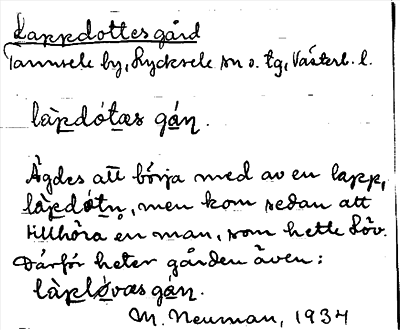 Lappdottes gård
Tannsele by, Lycksele sn o. tg, Västerb. l.
làpdótas gán.
Ägdes att börja med av en lapp,
làpdótn̥, men kom sedan att
tillhöra en man, som hette Löv.
Därför heter gården även:
làplóvas gán.
M. Neuman, 1934